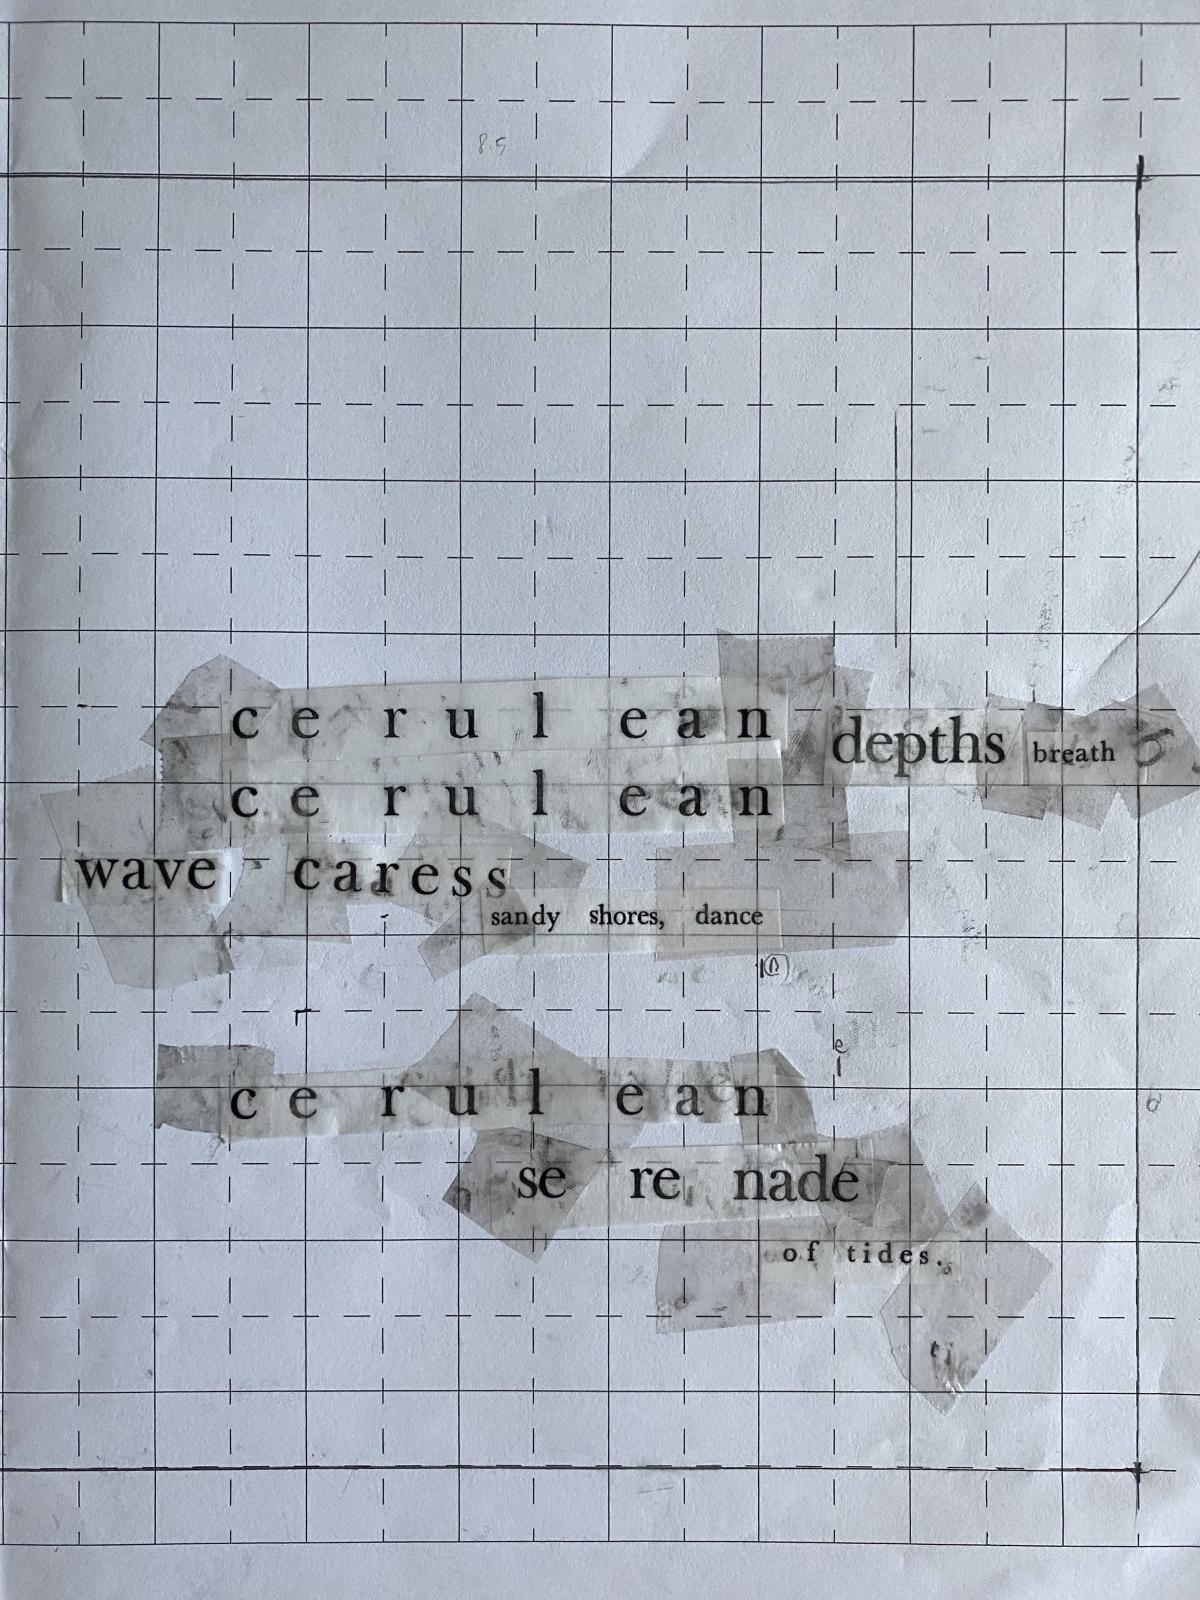 8.5
c e r u l e a n depths breath
c e r u l e a n
wave caress
sandy shores, dance
c e r u l e a n
se re nade
of tides.